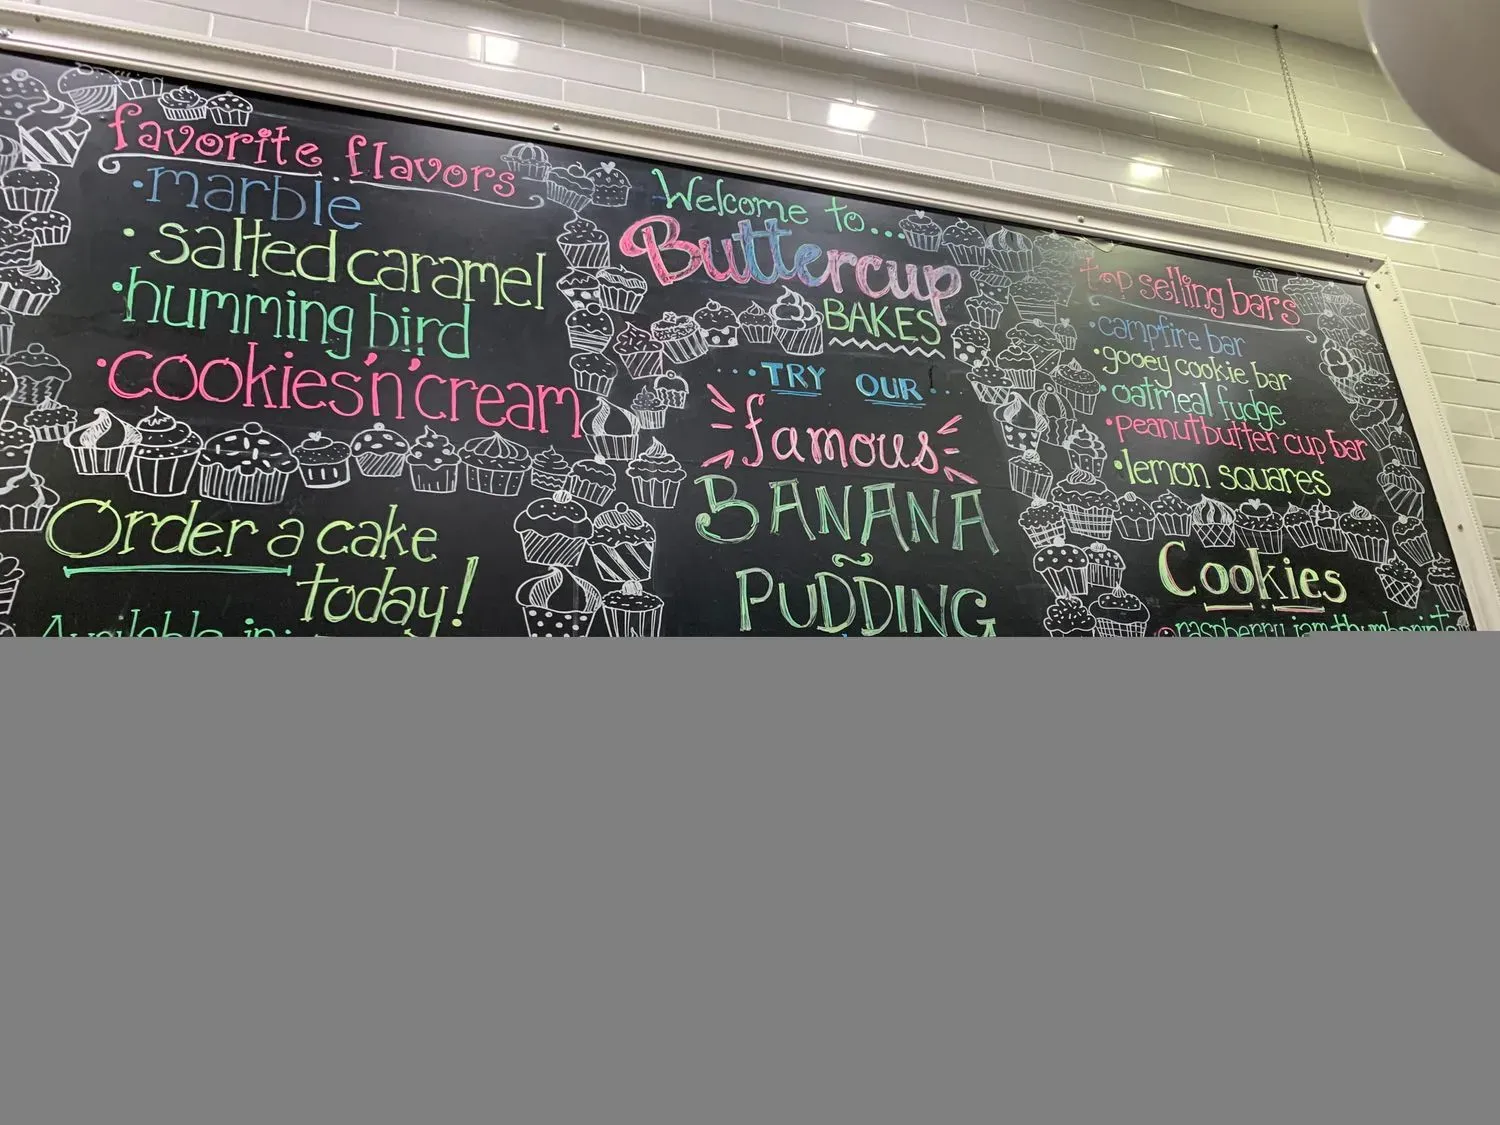 favorite flavors
• marble
• salted caramel
• humming bird
• cookies'n'cream
Order a cake
today!
Available in:
Welcome to...
Buttercup
BAKES
...TRY OUR...
famous
BANANA
PUDDING
top selling bars
• campfire bar
• gooey cookie bar
• oatmeal fudge
• peanutbutter cup bar
• lemon squares
Cookies
raspberry jam thumbprints